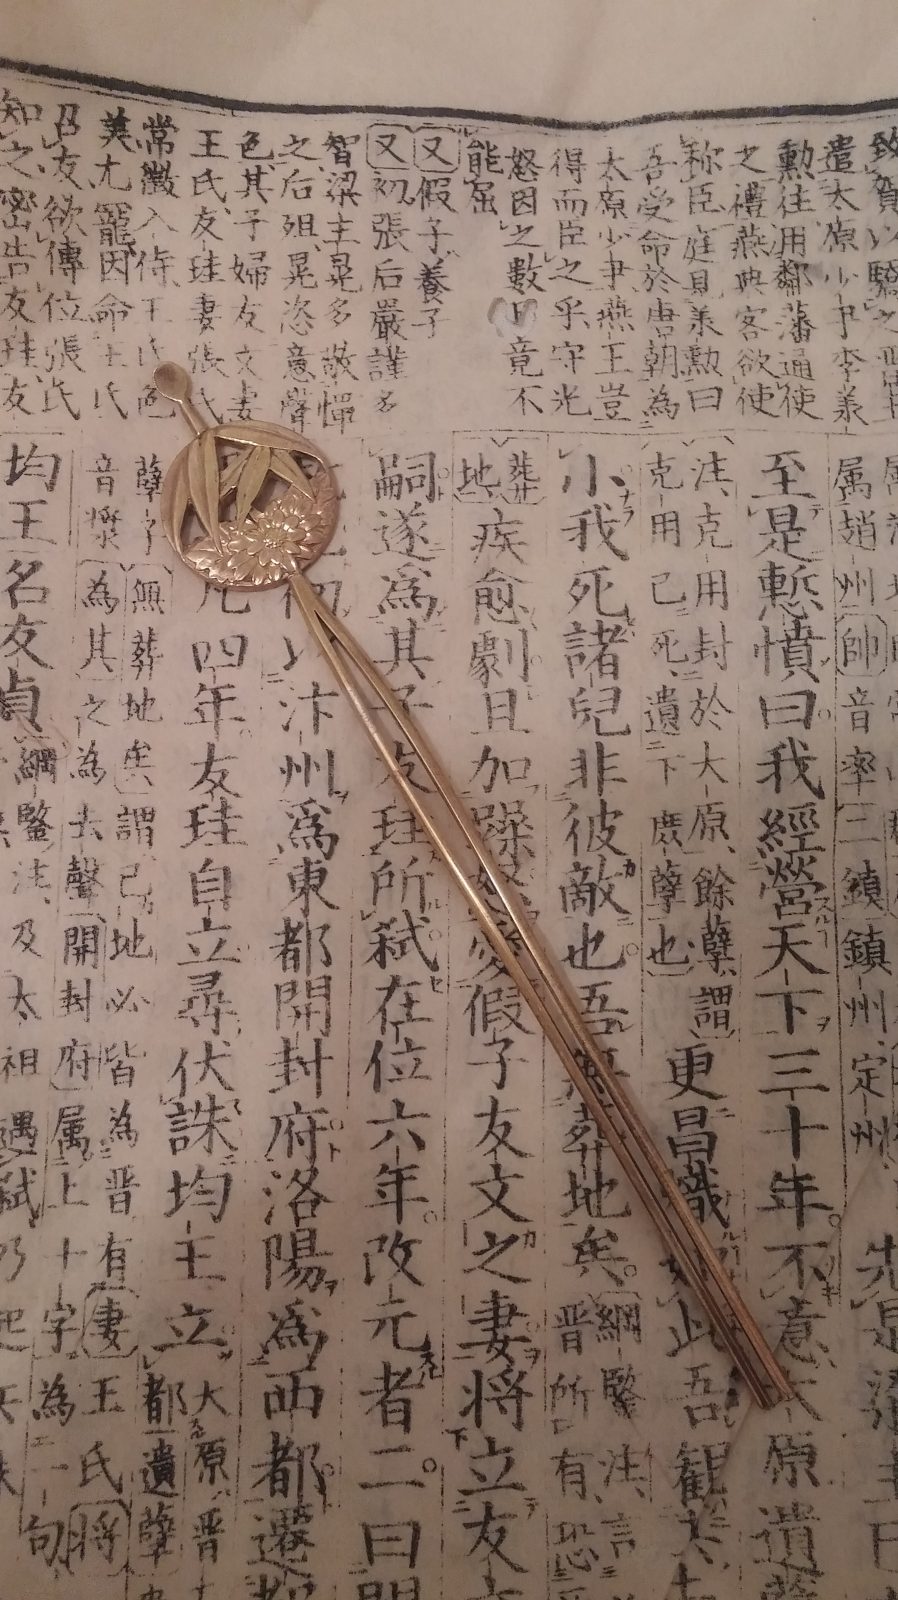 致賀以驕之
遣太原少尹李羕
勲往用鄰藩通使
之禮燕典客欲使
稱臣庭見羕勲曰
吾受命於唐朝為
太原少尹燕王豈
得而臣之乎守光
怒囚之數日竟不
能屈
又假子養子
又初張后嚴謹多
智梁主晃多敬憚
之后殂晃恣意聲
色其子婦友文妻
王氏友珪妻張氏
常徴入侍王氏色
美尤寵因命王氏
召友欲傳位張氏
知之密告友珪友
属趙州帥音率三鎮鎮州定州
先是梁主曰
至是慙憤曰我經營天下三十年不意太原遺孽
注克用封於大原餘孽謂
克用已死遺下庶孽也
更昌熾如此吾觀其
小我死諸兒非彼敵也吾無葬地矣
綱鑒注言
晋所有恐
葬地
疾愈劇且加躁怒愛假子友文之妻将立友
嗣遂爲其子友珪所弑在位六年改元者二曰開
汴州爲東都開封府洛陽爲西都遷都
凡四年友珪自立尋伏誅均王立
大原晋
都遺孽
孽子無葬地矣謂己地必皆為晋有妻王氏将
音檗為其之為去聲開封府属上十字為一句
均王名友貞
綱鑒注及太祖遇弑乃起